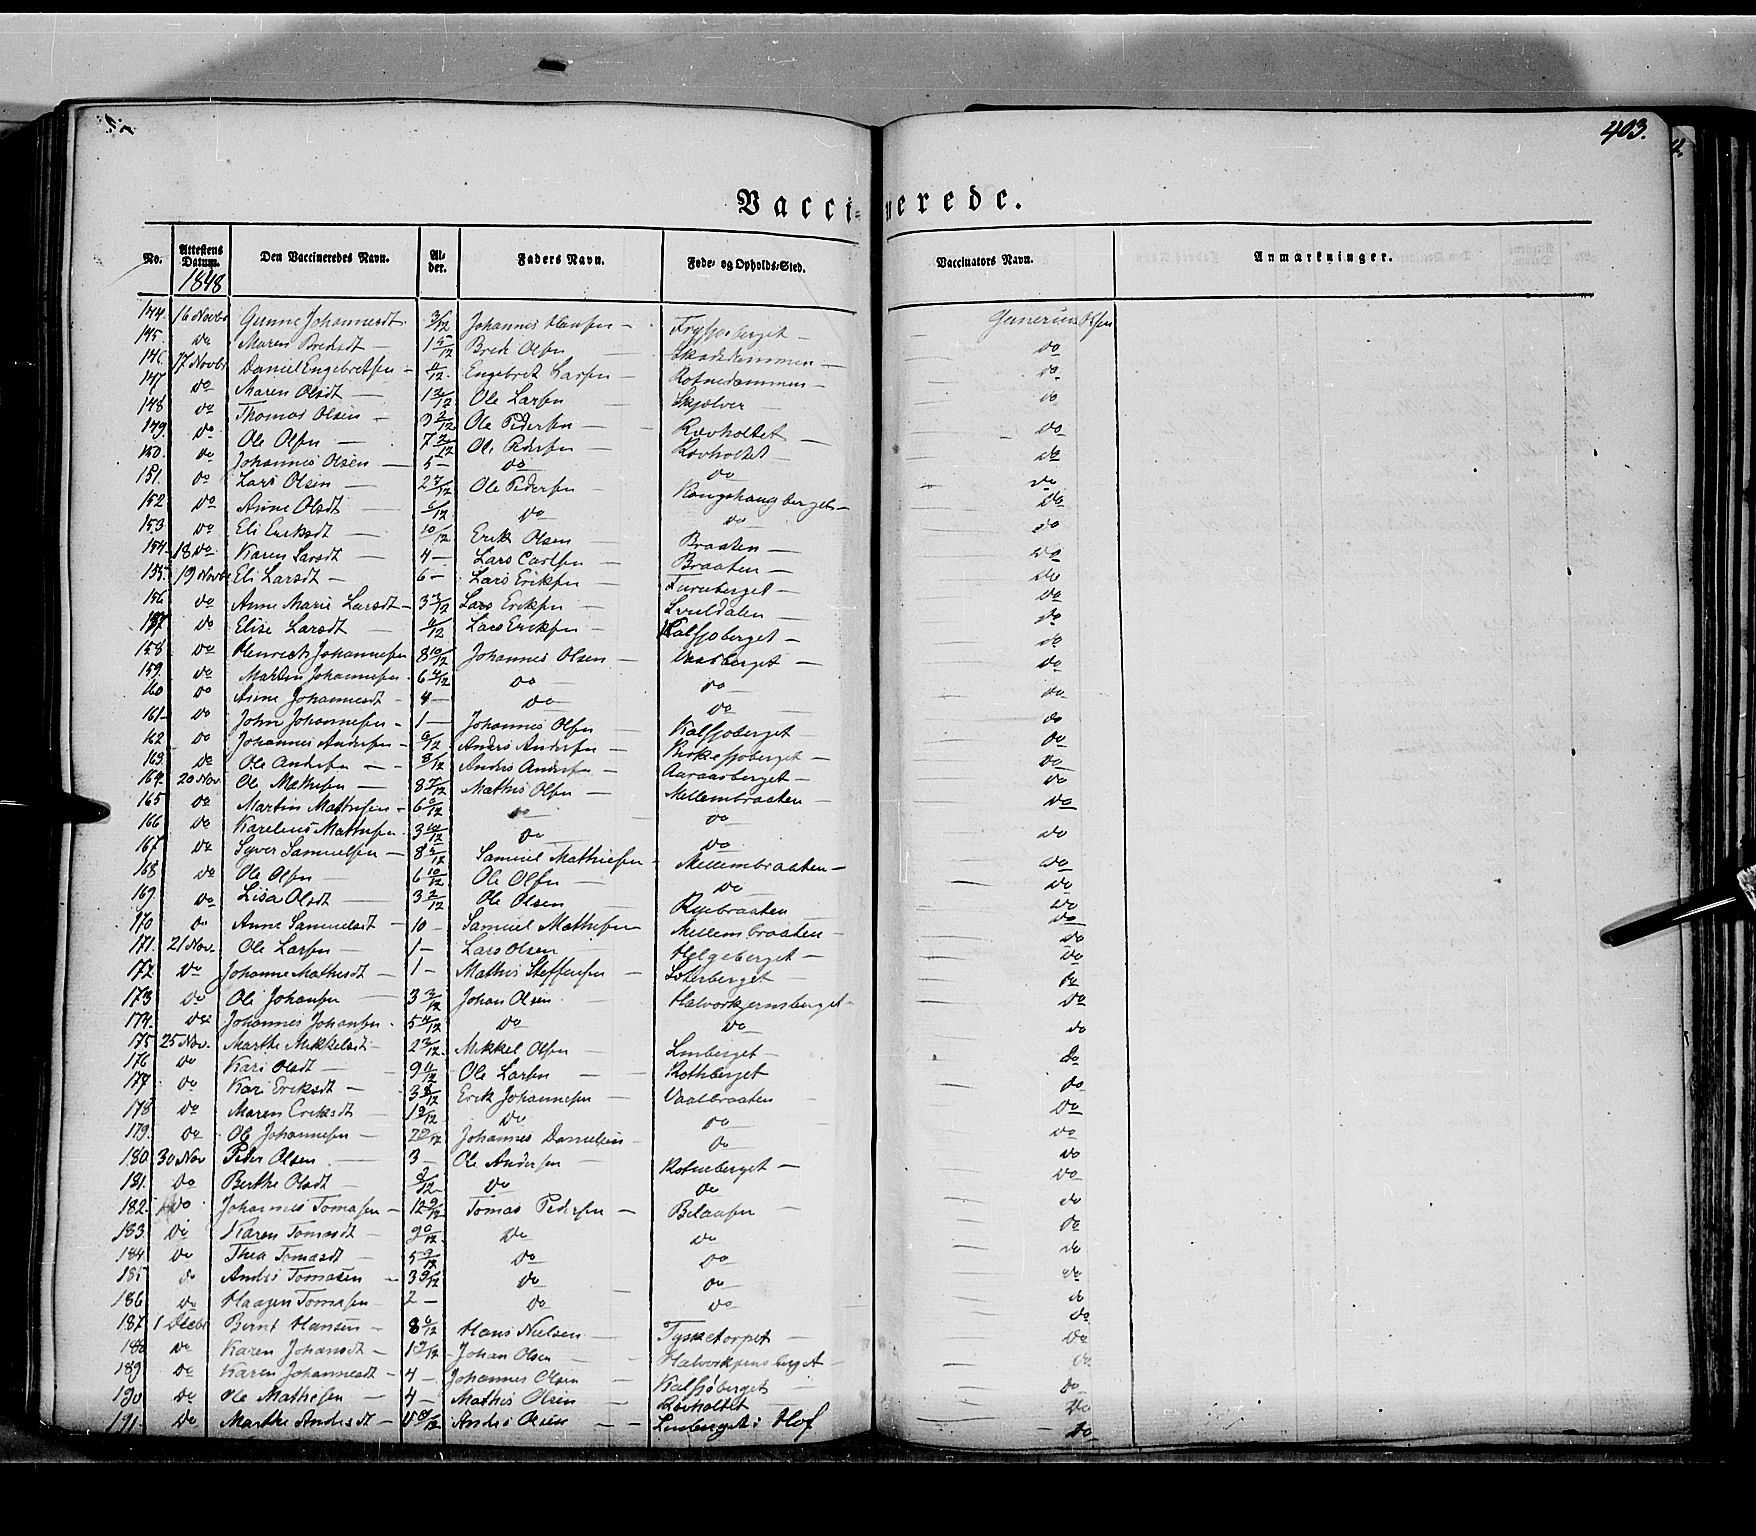 403.
Vaccinerede.
No. Attestens Datum. Den Vaccineredes Navn. Alder. Faders Navn. Føde- og Opholds-Sted. Vaccinators Navn. Anmærkninger.
1848
144. 16 Novbr Gunne Johannesdt. 3/12 Johannes Hansen — Frysjøberget — Gunerius Olsen
145. do Maren Bredsdt — 1 5/12 Brede Olsen — do
146. 17 Novbr Daniel Engebretsen — Engebret Larsen — Rotnedammen — do
147 do Maren Olsdt — Ole Larsen — Skjølver — do
148 do Thomas Olsen — 9 2/12 Ole Pedersen — Rovholtet — do
149. do Ole Olsen — 7 2/12 Ole Pedersen Rovholtet — do
150. do Johannes Olsen — 5 — do do do
151. do Lars Olsen — Ole Pedersen — Kongshaugberget — do
152 do Anne Olsdt — do do do
153 do Eli Eriksdt — 10/12 Erik Olsen — Braaten — do
154. 18 do Karen Larsdt — 4 — Lars Carlsen — Braaten — do
155. 19 Novbr Eli Larsdt — 6 — Lars Eriksen — Furuberget — do
156 do Anne Marie Larsdt — Lars Eriksen — do
157 do Elise Larsdt — Lars Eriksen — Kalsjøberget — do
158 do Henrich Johannesen 8 10/12 Johannes Olsen — do
159. do Martin Johannesen do do do
160 do Anne Johannesdt 4 — do do do
161 do John Johannesen — 1 — Johannes Olsen — Kalsjøberget — do
162 do Johannes Andersen — 6/12 Anders Andersen — Birkesjøberget — do
163. do Ole Andersen — 8/12 Anders Andersen — Aaraasberget — do
164. 20 Nov. Ole Mathisen — Mathis Olsen — Mellembraaten — do
165 do Martin Mathisen — do do do
166 do Karelius Mathisen 3 10/12 do do do
167 do Syver Samuelsen — 8 5/12 Samuel Mathisen — Mellembraaten — do
168 do Ole Olsen — 6 10/12 Ole Olsen — do do
169. do Lisa Olsdt — 3 2/12 Ole Olsen — Ryebraaten do
170 do Anne Samuelsdt — 10 — Samuel Mathisen Mellembraaten — do
171. 21 Nov. Ole Larsen — 1 — Lars Olsen Helgeberget — do
172. do Johanne Mathisdt — 1 — Mathis Steffensen — do
173 do Ole Johansen — Johan Olsen Halvorkjernsberget — do
174. do Johannes Johansen do do do
175 25 Nov. Marthe Mikkelsdt — Mikkel Olsen — Linberget — do
176 do Kari Olsdt — Ole Larsen — Rothberget do
177 do Kari Eriksdt — Erik Johannesen — Vaalbraaten — do
178 do Maren Eriksdt — do do do
179. do Ole Johannesen — Johannes Danielsen do do
180 30 Nov Peder Olsen — 3 — Ole Andersen — Rotneberget — do
181. do Berthe Olsdt — do do do
182. do Johannes Tomasen — 12 9/12 Tomas Pedersen — Belaasen — do
183. do Karen Tomasdt — do do do
184 do Thea Tomasdt — 5 9/12 do do do
185 do Anders Tomasen — do do do
186 do Haagen Tomasen 2 — do do do
187 1 Decbr Bernt Hansen — 8 6/12 Hans Nielsen — Tysketorpet — do
188 do Karen Johansdt — Johan Olsen — Halvorkjernsberget — do
189 do Karen Johannesdt — 4 — Johannes Olsen — Kalsjöberget do
190 do Ole Mathisen — 4 — Mathis Olsen — Rovholtet — do
191. do Marthe Andersdt — Anders Olsen — Linberget i Hof do